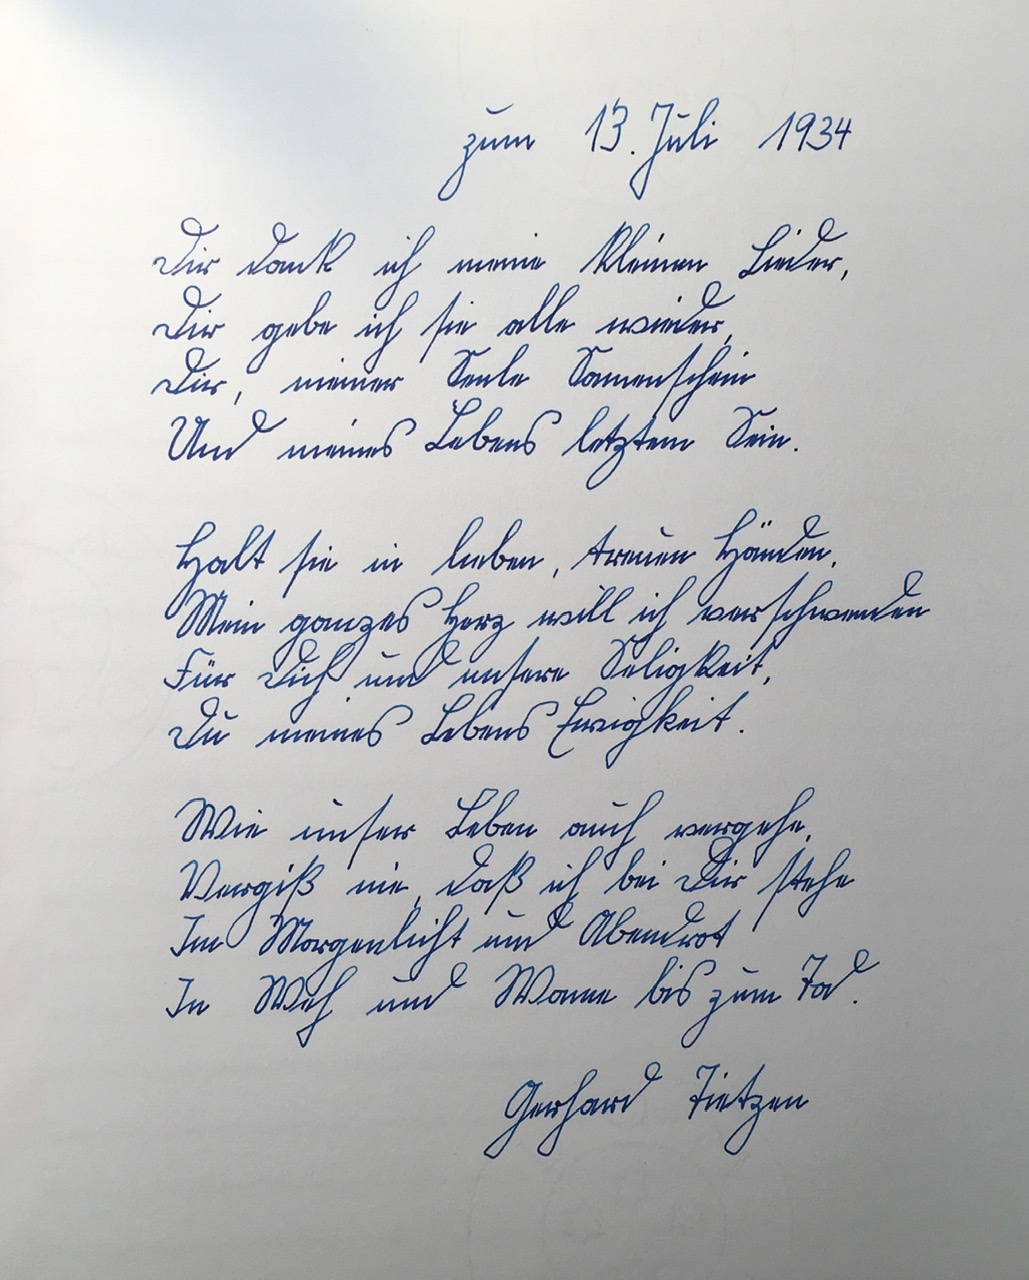 zum 13. Juli 1934
Dir dank ich meine kleinen Lieder,
Dir gebe ich sie alle wieder,
Dir, meiner Seele Sonnenschein
Und meines Lebens letztem Sein.
Halt sie in lieben, treuen Händen,
Mein ganzes Herz will ich verschwenden
Für Dich und unsere Seligkeit,
Du meines Lebens Ewigkeit.
Wie unser Leben auch vergehe,
Vergiß nie, daß ich bei Dir stehe
Im Morgenlicht und Abendrot
In Weh und Wonne bis zum Tod.
Gerhard Tietzen